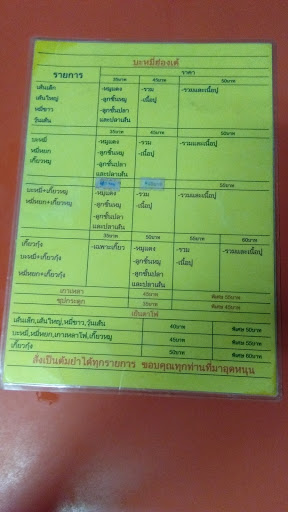 บะหมี่ฮ่องเต้
รายการ
ราคา
35บาท 45บาท 50บาท
เส้นเล็ก -หมูแดง -รวม -รวมและเนื้อปู
เส้นใหญ่ -ลูกชิ้นหมู -เนื้อปู
หมี่ขาว -ลูกชิ้นปลา
วุ้นเส้น และปลาเส้น
35บาท 45บาท 50บาท
บะหมี่ -หมูแดง -รวม -รวมและเนื้อปู
หมี่หยก -ลูกชิ้นหมู -เนื้อปู
เกี๊ยวหมู -ลูกชิ้นปลา
และปลาเส้น
50บาท
บะหมี่+เกี๊ยวหมู -หมูแดง -รวม -รวมและเนื้อปู
หมี่หยก+เกี๊ยวหมู -ลูกชิ้นหมู -เนื้อปู
-ลูกชิ้นปลา
และปลาเส้น
35บาท 50บาท 50บาท 60บาท
เกี๊ยวกุ้ง -เฉพาะเกี๊ยว -หมูแดง -รวม -รวมและเนื้อปู
บะหมี่+เกี๊ยวกุ้ง -ลูกชิ้นหมู -เนื้อปู
หมี่หยก+เกี๊ยวกุ้ง -ลูกชิ้นปลา
และปลาเส้น
เกาเหลา 40บาท พิเศษ 50บาท
ซุปกระดูก 35บาท พิเศษ 40บาท
เย็นตาโฟ
เส้นเล็ก,เส้นใหญ่,หมี่ขาว,วุ้นเส้น 40บาท พิเศษ 50บาท
บะหมี่,หมี่หยก,เกาเหลาโฟ,เกี๊ยวหมู 45บาท พิเศษ 50บาท
เกี๊ยวกุ้ง 50บาท พิเศษ 60บาท
สั่งเป็นต้มยำได้ทุกรายการ ขอบคุณทุกท่านที่มาอุดหนุน